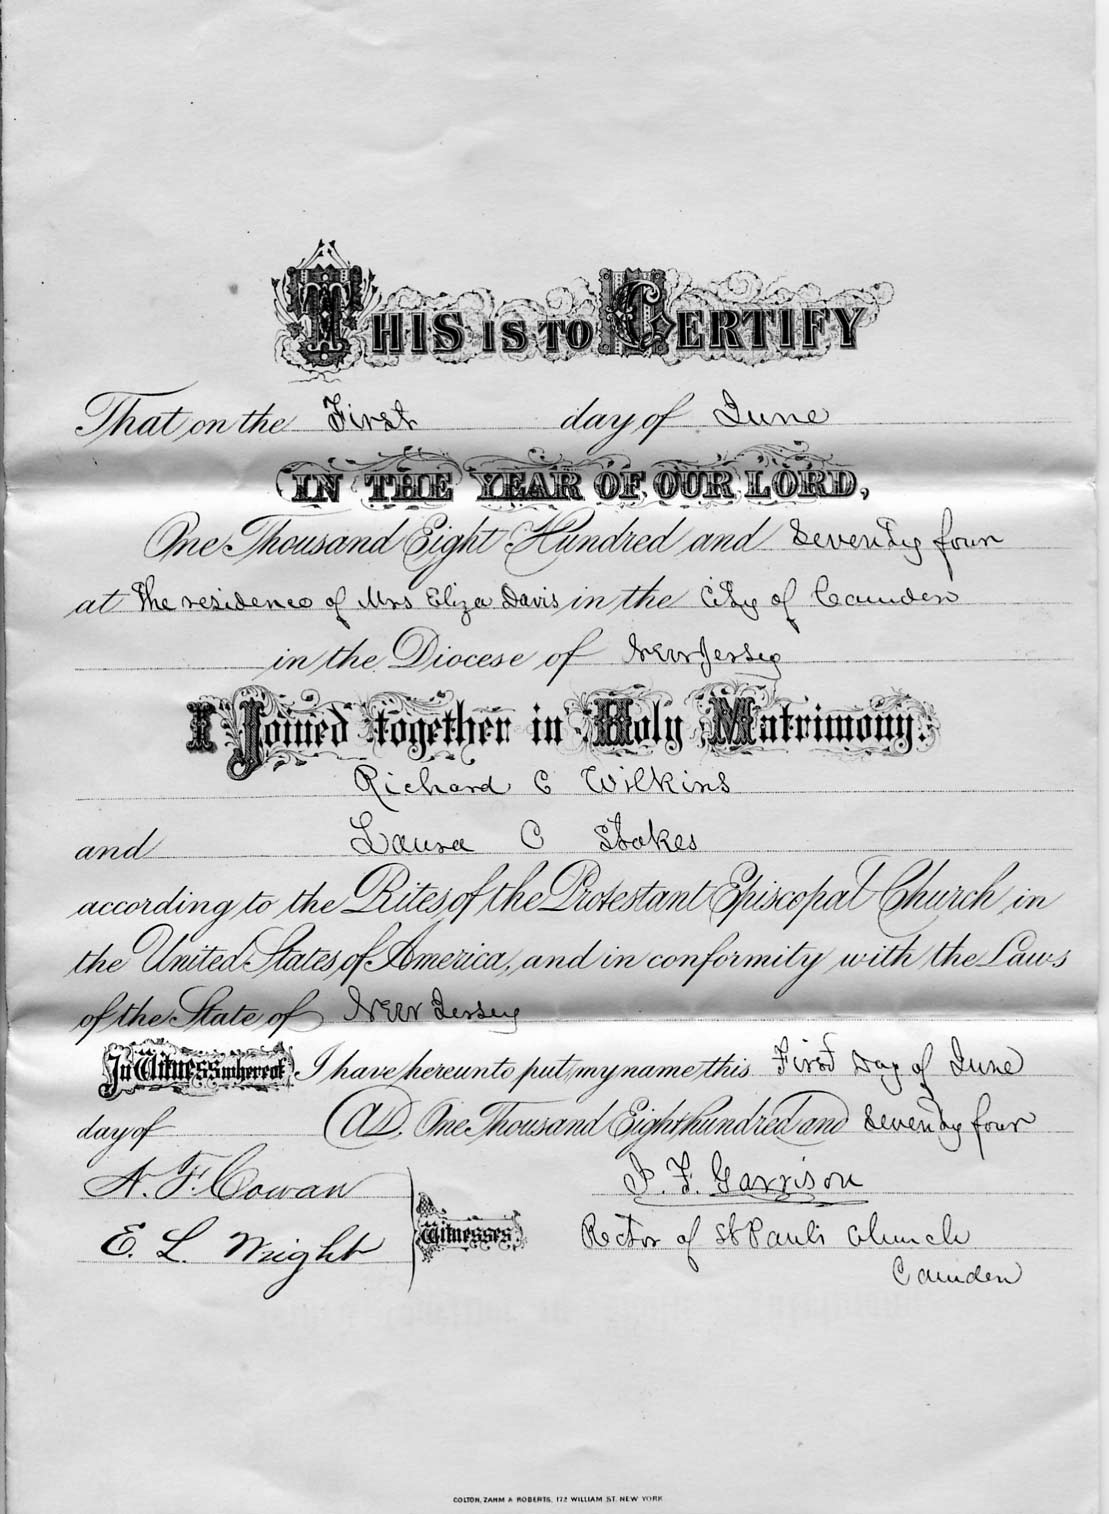 THIS IS TO CERTIFY
That on the First day of June
IN THE YEAR OF OUR LORD,
One Thousand Eight Hundred and Seventy four
at the residence of Mrs Eliza Davis in the City of Camden
in the Diocese of New Jersey
I Joined together in Holy Matrimony.
Richard C Wilkins
and Laura C Stokes
according to the Rites of the Protestant Episcopal Church in
the United States of America, and in conformity with the Laws
of the State of New Jersey
In Witness whereof I have hereunto put my name this First Day of June
day of A.D. One Thousand Eight hundred and Seventy four
A. F. Cowan J. F. Garrison
E. L. Wright Witnesses. Rector of St Paul's Church
Camden
COLTON, ZAHM & ROBERTS, 172 WILLIAM ST. NEW YORK